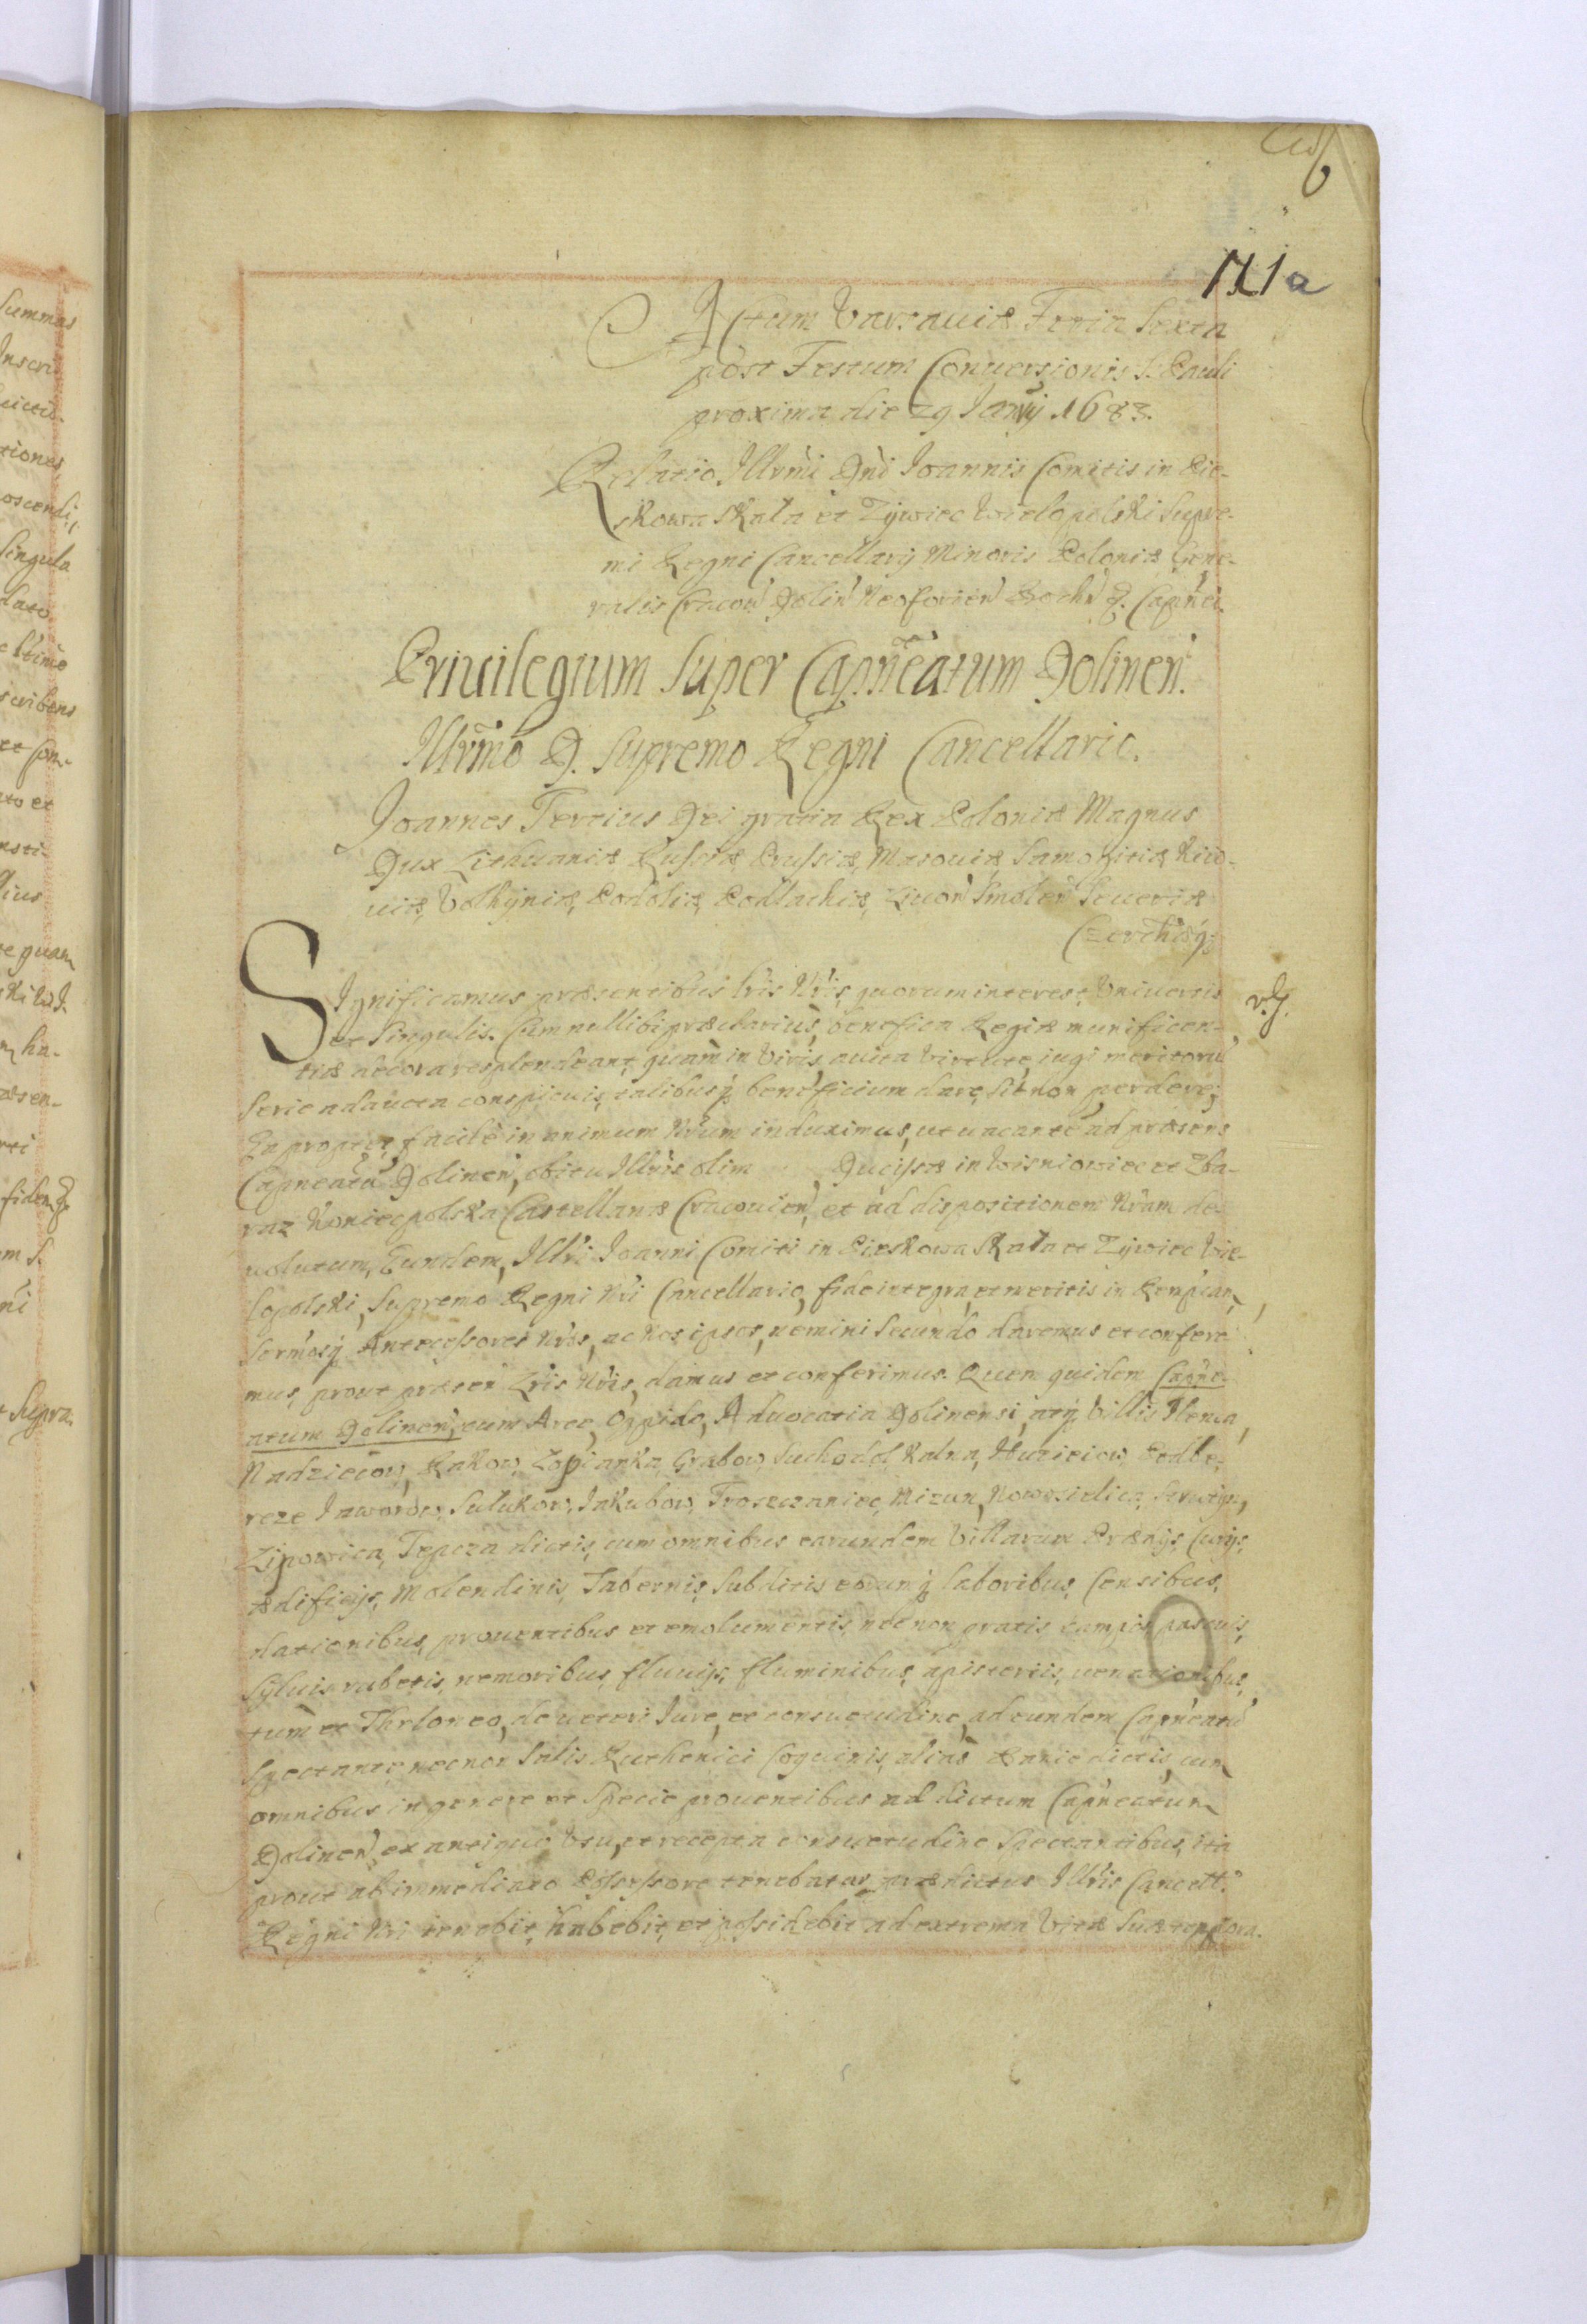 171a
Actum Varsauiæ Feria Sexta
post Festum Conuersionis S. Pauli
proxima die 29 Januÿ 1683.
Relatio Illrmi Dni Joannis Comitis in Pie-
skowa Skała et Zÿwiec Wielopolski Supre-
mi Regni Cancellarÿ Minoris Poloniæ Gene-
ralis Cracoun Dolin Neoforien Bochn &. Capnei.
Priuilegium Super Capneatum Dolinen.
Illrmo D. Supremo Regni Cancellario.
Joannes Tertius Dei gratia Rex Poloniæ Magnus
Dux Lithuaniæ Russiæ Prussiæ, Masouiæ Samogitiæ Kiio-
uiæ, Volhÿniæ, Podoliæ, Podlachiæ, Liuon Smolen Seueriæ
Czerchæq;
Significamus præsentibus lris Nris, quorum interest, Vniuersis
et Singulis. Cum nullibi præclarius, benefica Regiæ munificen-
tiæ decora resplendeant, quam in Viris, auita Virtute, iugi meritoru
Serie adaucta conspicuis, talibusq; beneficium dare, Sit non perdere;
Ea propter, facile in animum Nrum induximus, ut uacante ad præsens
Capneatu Dolinen, obitu Illris olim Ducissæ in Wisniowiec et Zba-
raz Koniecpolska Castellanæ Cracouien, et ad dispositionem Nram de-
uolutum, Eundem, Illri Joanni Comiti in Pieskowa Skała et Zÿwiec Wie-
lopolski, Supremo Regni Nri Cancellario, fide integra, et meritis in Rempcam,
Sermosq; Antecessores Nros, ac Nos ipsos, nemini Secundo daremus et confere-
mus, prout præsen Lris Nris, damus et conferimus. Quem quidem Capne-
atum Dolinen, cum Arce, Oppido, Aduocatia Dolinensi, atq; Villis Hemia,
Nadzieiow, Rakow, Lopianka, Grabow, Suchodol, Kalna, Huzieiow, Podbe-
reze Jaworow, Sulukow, Jakubow, Troszczaniec, Mizun, Nowosielica,
Lipowica, Tepcza dictis, cum omnibus earundem Villarum Prædijs, Curijs,
Ædificijs, Molendinis, Tabernis, Subditis eorumq; laboribus, Censibus,
dationibus, prouentibus et emolumentis, nec non pratis, campis, pascuis,
Sÿluis, rubetis, nemoribus, fluuijs, fluminibus, apisteriis, uenationibus,
tum et Theloneo, de ueteri Jure, et consuetudine, ad eundem Capneatu
Spectante, necnon Salis Ruthenici Coquinis, alias Banie dictis, cum
omnibus in genere et Specie prouentibus ad dictum Capneatum
Dolinen, ex antiquo Vsu, et recepta consuetudine Spectantibus, ita
prout ab immediato Possessore tenebatur, prædictus Illris Cancell.
Regni Nri tenebit, habebit, et possidebit ad extrema Vitæ Suæ tempora.